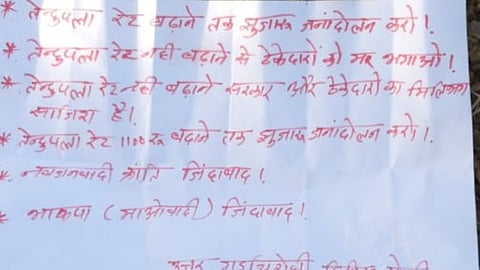 * तेन्दुपत्ता रेट बढ़ाने तक जुझारू जनांदोलन करो!
* तेन्दुपत्ता रेट नही बढ़ाने से ठेकेदारों को मार भगाओ!
* तेन्दुपत्ता रेट नही बढ़ाने सरकार और ठेकेदारों का मिलिभगत
साजिश है!
* तेन्दुपत्ता रेट 1100 रु बढ़ाने तक जुझारू जनांदोलन करो!
* नवजनवादी क्रांति जिंदाबाद!
* भाकपा (माओवादी) जिंदाबाद!
उत्तर गडचिरोली